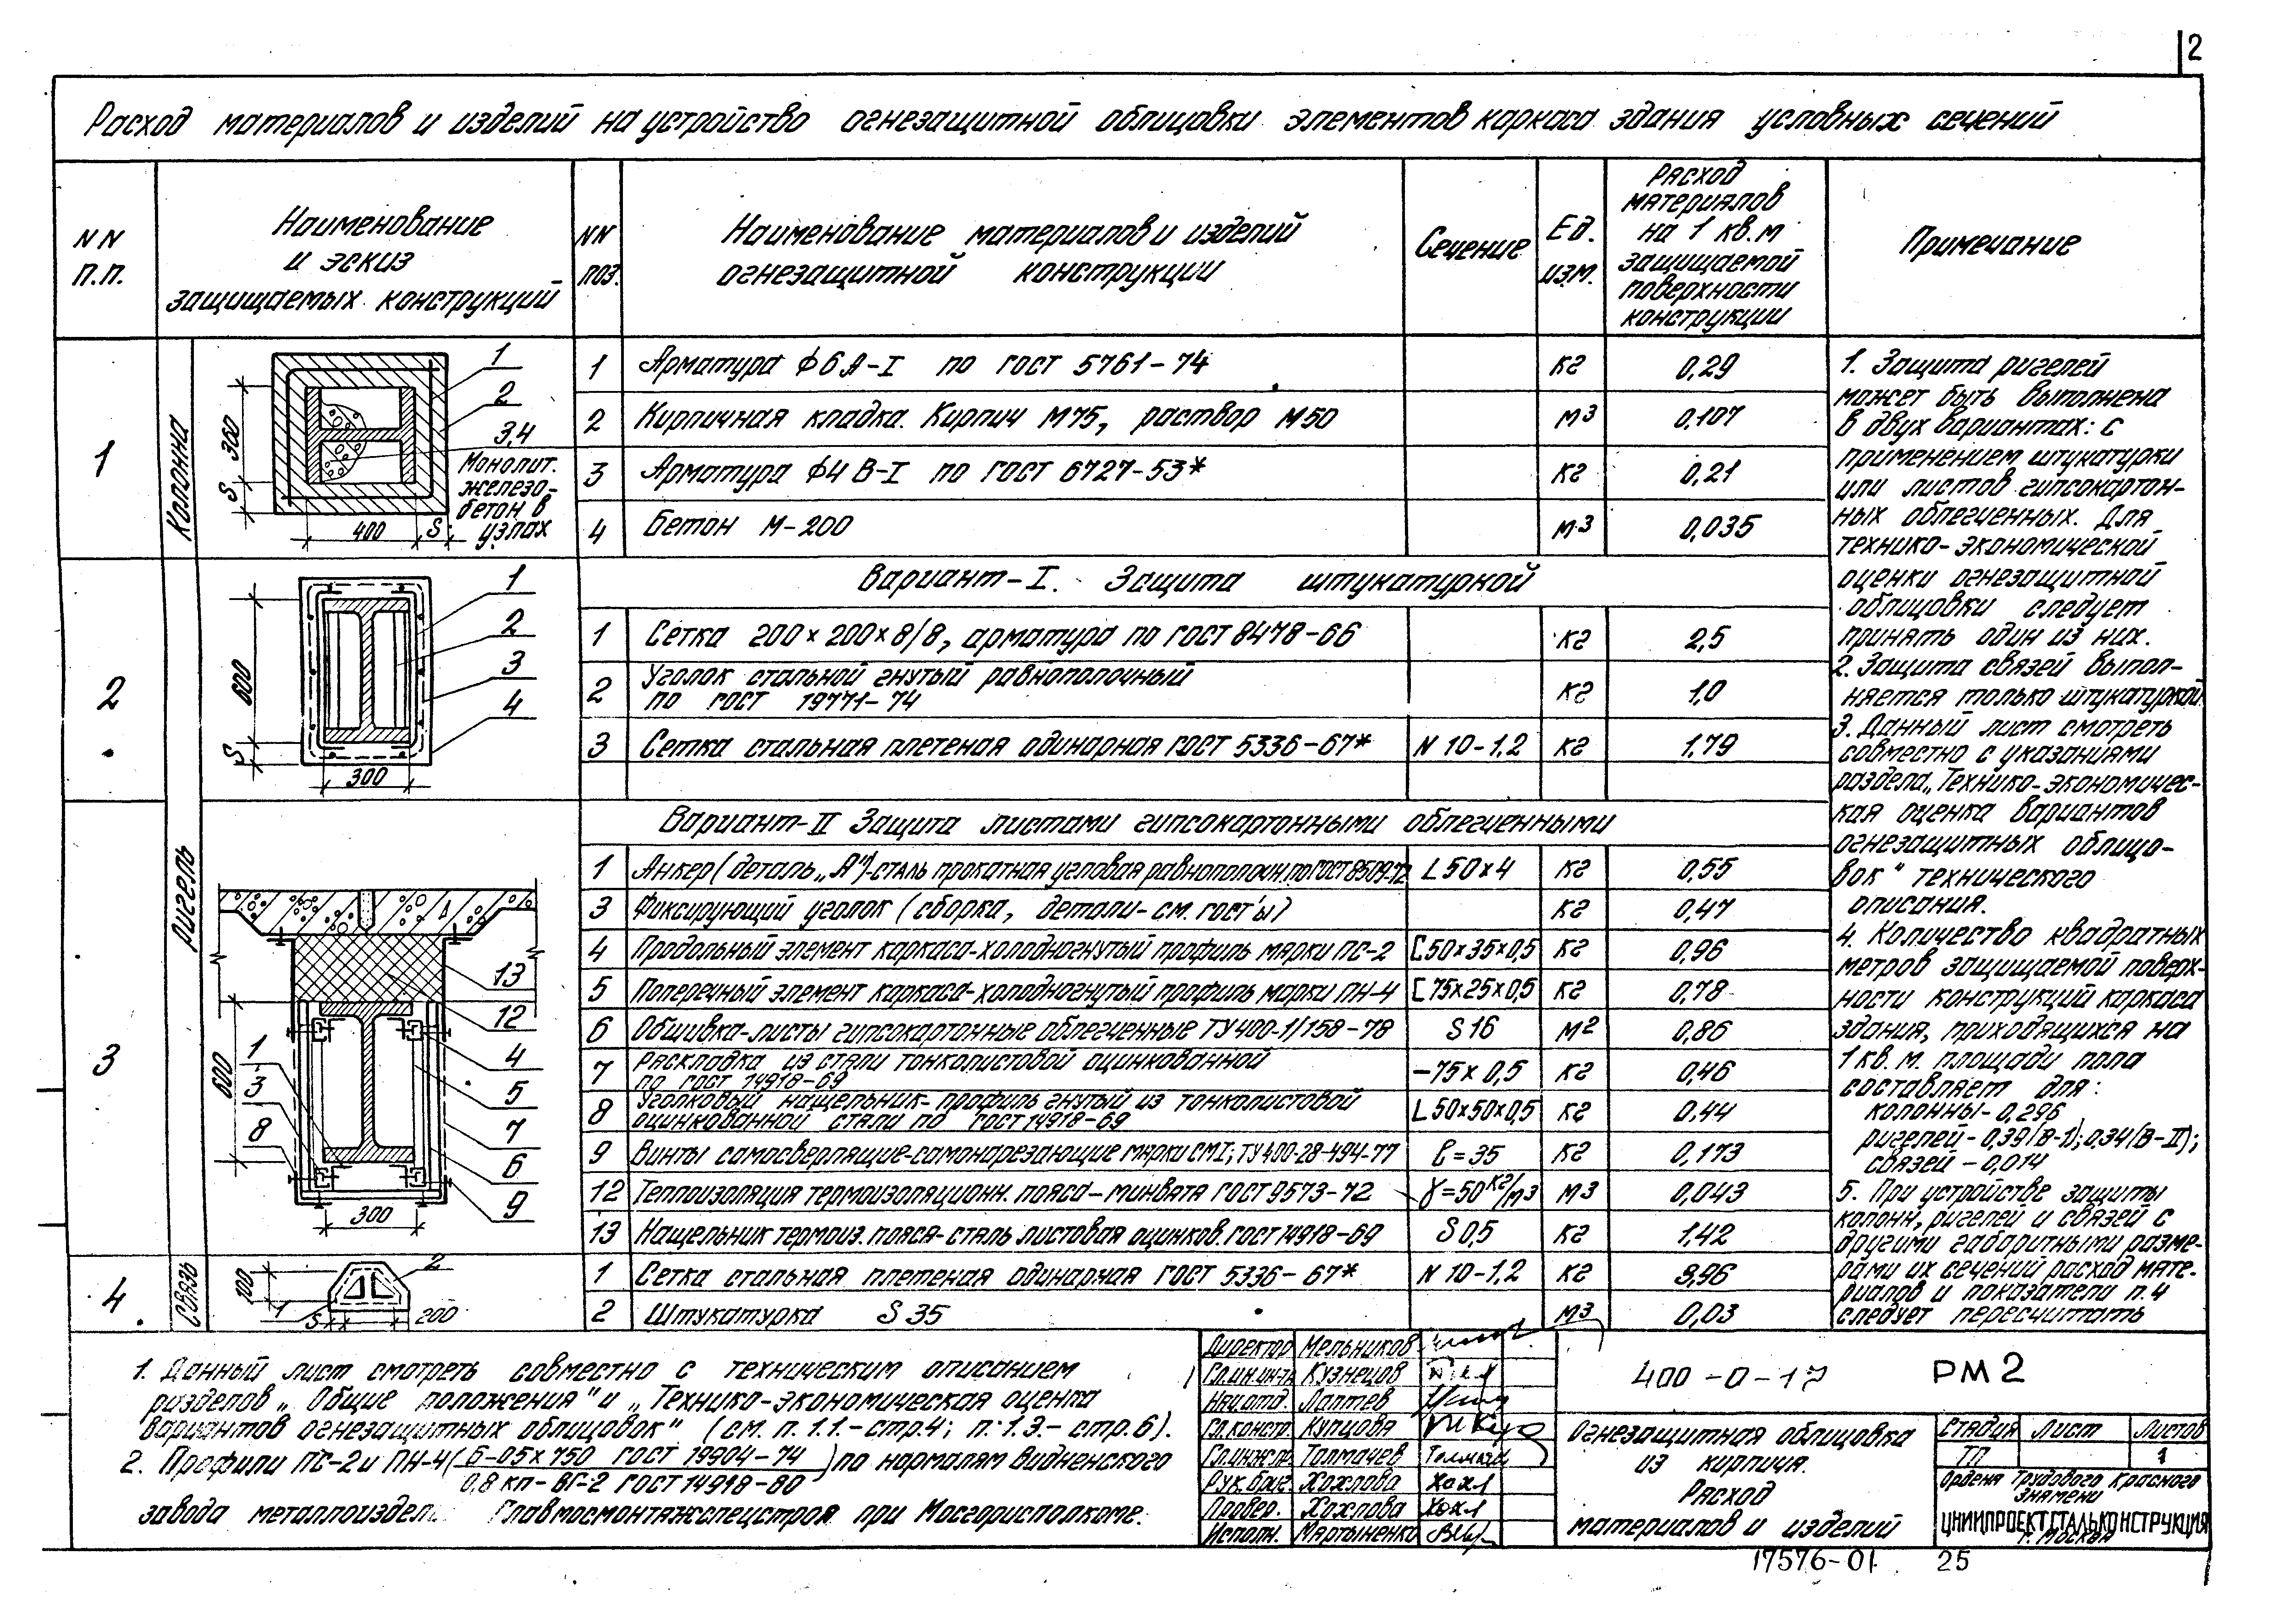 2
Расход материалов и изделий на устройство огнезащитной облицовки элементов каркаса здания условных сечений
NN
п.п.
Наименование
и эскиз
защищаемых конструкций
NN
поз.
Наименование материалов и изделий
огнезащитной конструкции
Сечение
Ед.
изм.
Расход
материалов
на 1 кв.м
защищаемой
поверхности
конструкции
Примечание
1
Колонна
360
S
400
S
1
2
3,4
Монолит.
железо-
бетон в
узлах
1 Арматура ф6 А-I по ГОСТ 5761-74 кг 0,29
2 Кирпичная кладка. Кирпич М75, раствор М50 м3 0,107
3 Арматура ф4 В-I по ГОСТ 6727-53* кг 0,21
4 Бетон М-200 м3 0,035
2
ригель
600
S
300
1
2
3
4
Вариант-I. Защита штукатуркой
1 Сетка 200×200×8/8, арматура по ГОСТ 8478-66 кг 2,5
2 Уголок стальной гнутый равнополочный
по ГОСТ 19771-74 кг 1,0
3 Сетка стальная плетеная одинарная ГОСТ 5336-67* N 10-1,2 кг 1,79
3
600
300
13
12
1
4
3
5
8
7
6
9
Вариант-II Защита листами гипсокартонными облегченными
1 Анкер (деталь „А")-сталь прокатная угловая равнополочн. по ГОСТ 8509-72 L 50×4 кг 0,55
3 Фиксирующий уголок (сборка, детали-см. гост'ы) кг 0,47
4 Продольный элемент каркаса-холодногнутый профиль марки ПС-2 [50×35×0,5 кг 0,96
5 Поперечный элемент каркаса-холодногнутый профиль марки ПН-4 [75×25×0,5 кг 0,78
6 Обшивка-листы гипсокартонные облегченные ТУ 400-1/158-78 S 16 м2 0,86
7 Раскладка из стали тонколистовой оцинкованной
по ГОСТ 14918-69 -75×0,5 кг 0,46
8 Уголковый нащельник-профиль гнутый из тонколистовой
оцинкованной стали по ГОСТ 14918-69 L 50×50×0,5 кг 0,44
9 Винты самосверлящие-самонарезающие марки СМ1; ТУ 400-28-494-77 ℓ=35 кг 0,173
12 Теплоизоляция термоизоляционн. пояса-минвата ГОСТ 9573-72 γ=50 кг/м3 м3 0,043
13 Нащельник термоиз. пояса-сталь листовая оцинков. ГОСТ 14918-69 S 0,5 кг 1,42
4
связь
100
2
1
S
200
1 Сетка стальная плетеная одинарная ГОСТ 5336-67* N 10-1,2 кг 3,96
2 Штукатурка S 35 м3 0,03
1. Защита ригелей
может быть выполнена
в двух вариантах: с
применением штукатурки
или листов гипсокартон-
ных облегченных. Для
технико-экономической
оценки огнезащитной
облицовки следует
принять один из них.
2. Защита связей выпол-
няется только штукатуркой.
3. Данный лист смотреть
совместно с указаниями
раздела „Технико-экономичес-
кая оценка вариантов
огнезащитных облицо-
вок" технического
описания.
4. Количество квадратных
метров защищаемой поверх-
ности конструкций каркаса
здания, приходящихся на
1 кв. м. площади пола
составляет для:
колонны-0,296
ригелей-0,39(В-I); 0,34(В-II);
связей-0,014
5. При устройстве защиты
колонн, ригелей и связей с
другими габаритными разме-
рами их сечений расход мате-
риалов и показатели п.4
следует пересчитать
1. Данный лист смотреть совместно с техническим описанием
разделов „Общие положения" и „Технико-экономическая оценка
вариантов огнезащитных облицовок" (см. п. 1.1.-стр.4; п. 1.3.-стр.6).
2. Профили ПС-2 и ПН-4 (Б-05×750 ГОСТ 19904-74 / 0,8 кп-ВГ-2 ГОСТ 14918-80) по нормалям Видненского
завода металлоиздел. Главмосмонтажспецстроя при Мосгорисполкоме.
Директор Мельников
Гл.ин.ин-та Кузнецов
Нач.отд. Лаптев
Гл.констр. Купцова
Гл.инж.пр. Толмачев
Рук.бриг. Хохлова
Провер. Хохлова
Исполн. Мартыненко
400-0-17 РМ2
Огнезащитная облицовка
из кирпича.
Расход
материалов и изделий
Стадия Лист Листов
ТП 1
Ордена Трудового Красного
Знамени
ЦНИИПРОЕКТСТАЛЬКОНСТРУКЦИЯ
г. Москва
17576-01 25